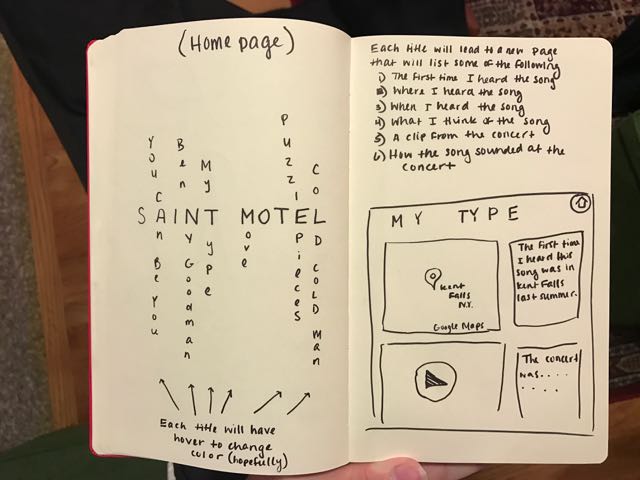 (Home page)
You Can Be You
Benny Goodman
My Type
Move
Puzzle Pieces
Cold Cold man
SAINT MOTEL
Each title will have
hover to change
color (hopefully)
Each title will lead to a new page
that will list some of the following
1) The first time I heard the song
2) Where I heard the song
3) When I heard the song
4) What I think of the song
5) A clip from the concert
6) How the song sounded at the
concert
MY TYPE
Kent
Falls
N.Y.
Google Maps
The first time
I heard this
song was in
Kent Falls
last summer.
The concert
was.....
.....